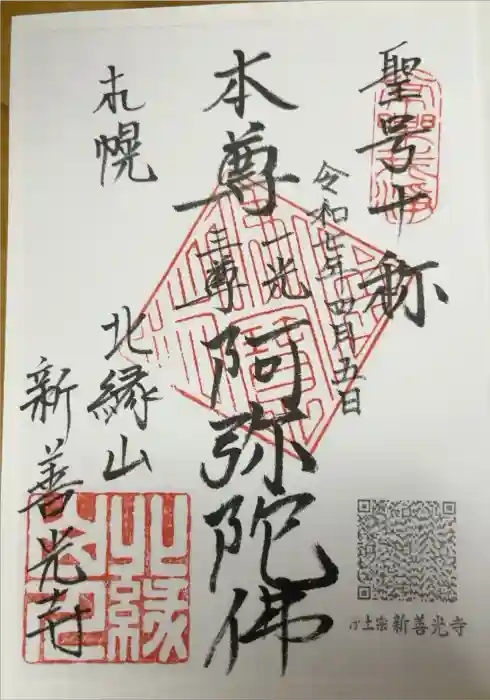 聖号十称
令和七年四月五日
本尊
一光
三尊
阿弥陀佛
札幌
北縁山
新善光寺
北縁
浄土宗 新善光寺